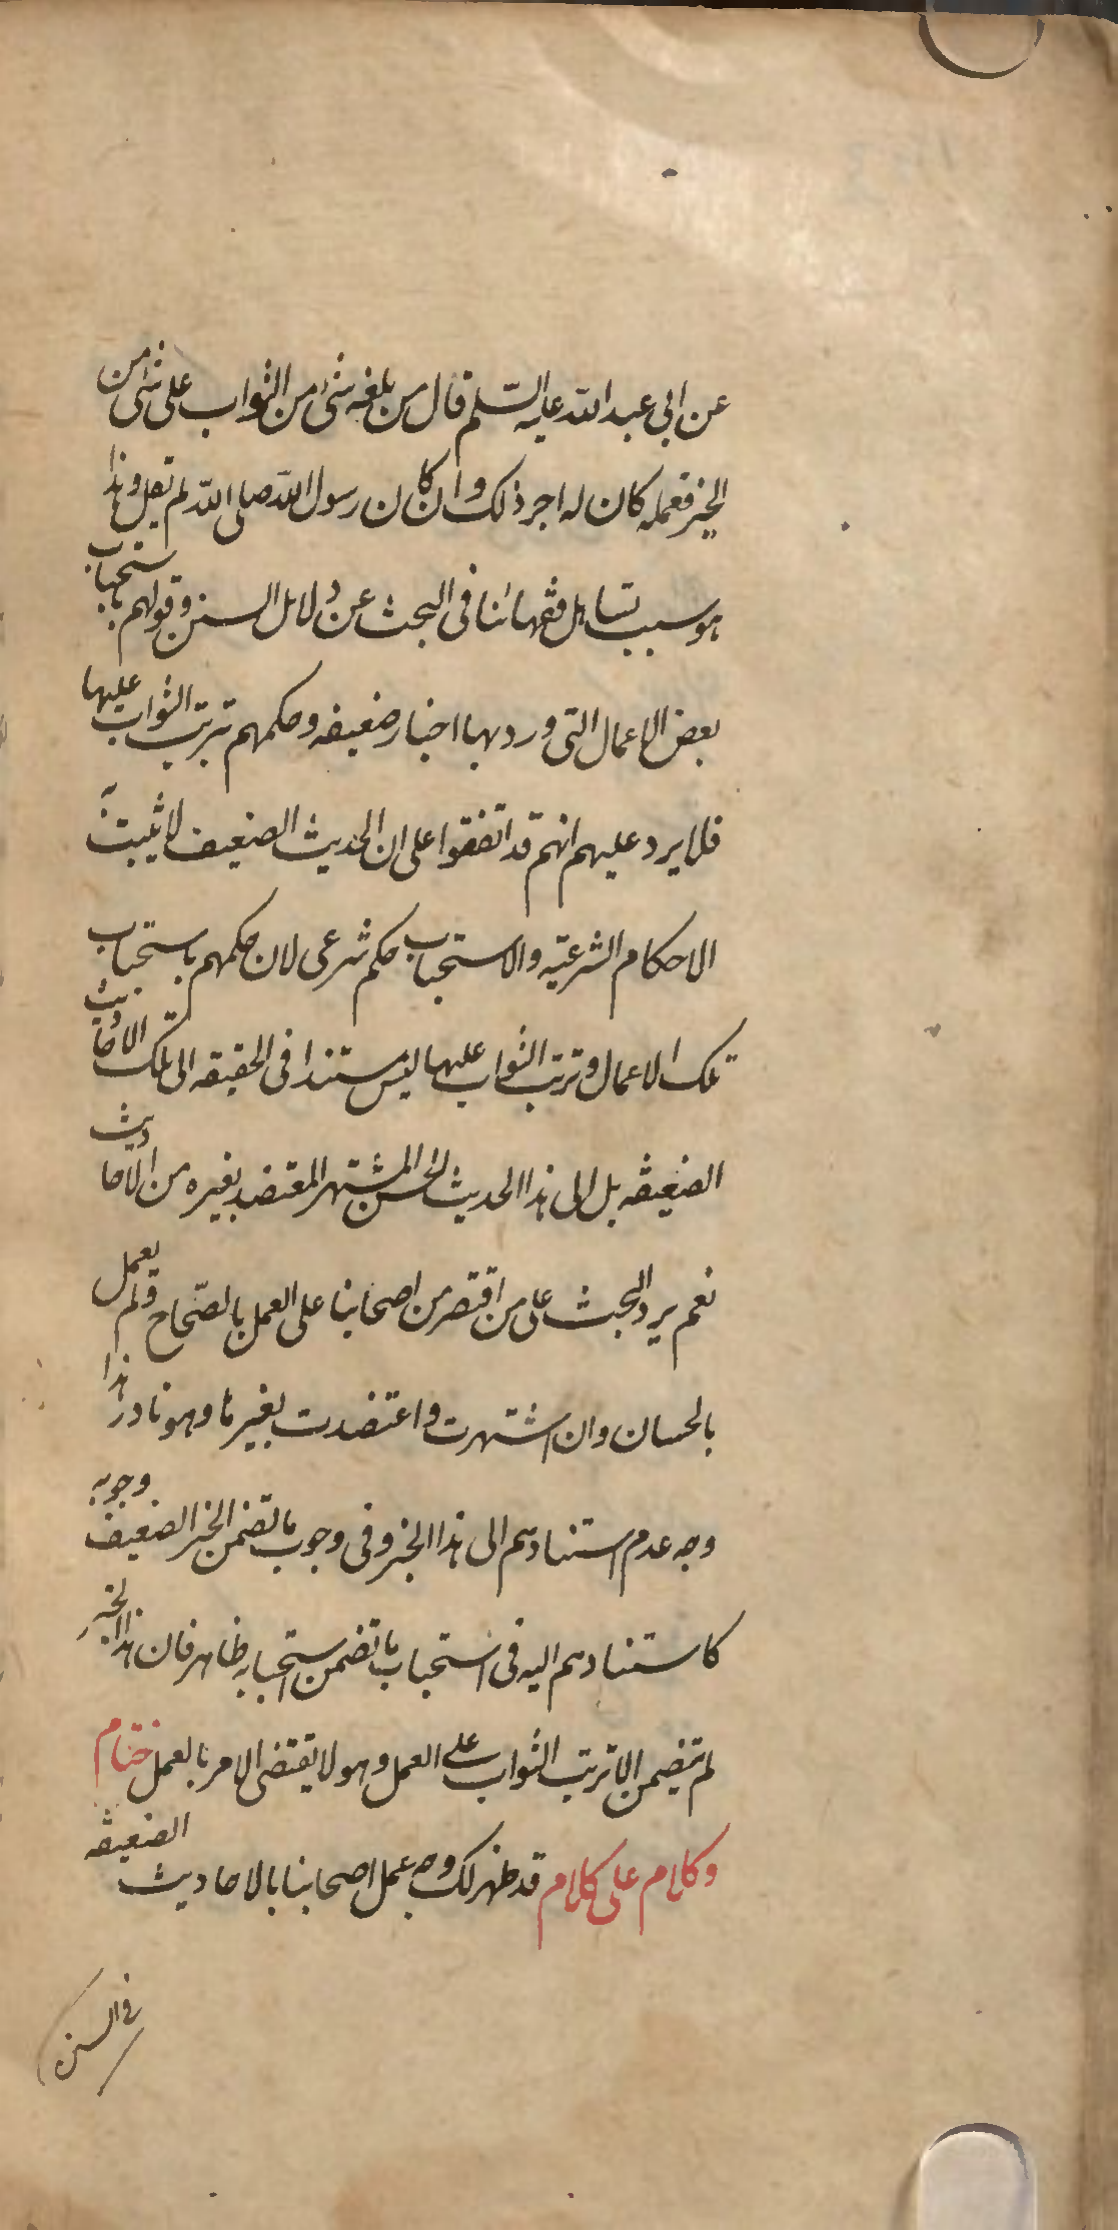 عن ابی عبد الله علیه السّلم قال من بلغه شئ من الثواب علی شئ من
الخیر فعمله کان له اجر ذلک وان کان رسول الله صلی الله لم یقله وهذا
هو سبب تساهل فقهائنا فی البحث عن دلائل السنن وقولهم باستحباب
بعض الاعمال التی ورد بها اخبار ضعیفه وحکمهم بترتب الثواب علیها
فلا یرد علیهم انهم قد اتفقوا علی ان الحدیث الضعیف لا یثبت به
الاحکام الشرعیّه والاستحباب حکم شرعی لان حکمهم باستحباب
تلک الاعمال وترتب الثواب علیها لیس مستندا فی الحقیقه الی تلک الاحادیث
الضعیفه بل الی هذا الحدیث الحسن المشتهر المعتضد بغیره من الاحادیث
نعم یرد البحث علی من اقتصر من اصحابنا علی العمل بالصّحاح ولم یعمل
بالحسان وان اشتهرت واعتضدت بغیرها وهو نادر هذا
وجه عدم استنادهم الی هذا الخبر فی وجوب ما تضمن الخبر الضعیف وجوبه
کاستنادهم الیه فی استحباب ما تضمن استحبابه ظاهر فان هذا الخبر
لم یتضمن الا ترتب الثواب علی العمل وهو لا یقتضی الامر بالعمل ختام
وکلام علی کلام قد ظهر لک وجه عمل اصحابنا بالاحادیث الضعیفه
فی السنن